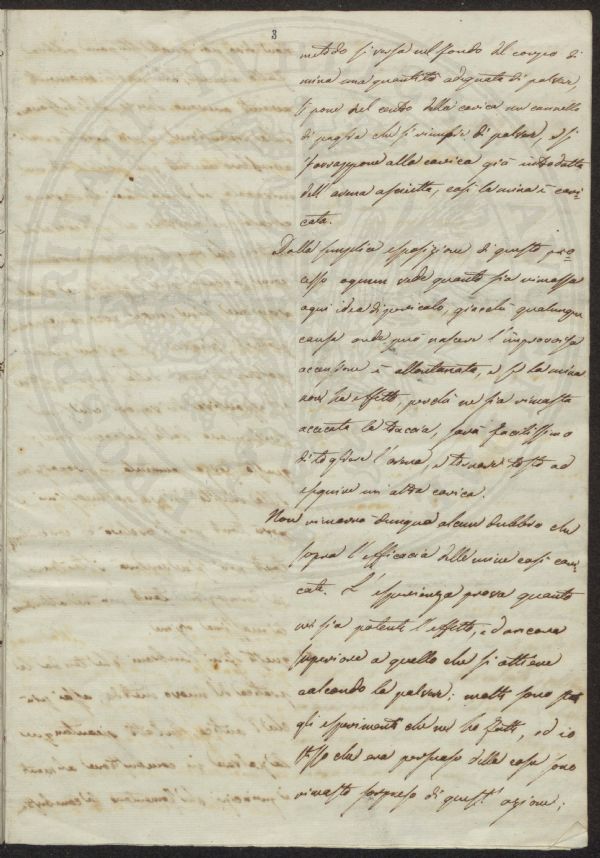 3
metodo si versa nel fondo del corpo di
mina una quantità adeguata di polvere,
si pone nel centro della carica un cannello
di paglia che si riempie di polvere, e si
sovrappone alla carica già introdotta
dell'arena asciutta, così la mina è cari=
cata.
Dalla semplice esposizione di questo pro=
cesso ognun vede quanto sia rimossa
ogni idea di pericolo, giacché qualunque
causa onde può nascere l'improvvisa
accensione è allontanata, e se la mina
non ha effetto, perché ne sia rimasta
acciecata la traccia, sarà facilissimo
di togliere l'arena, e tornare tosto ad
eseguire un'altra carica.
Non rimane dunque alcun dubbio che
sopra l'efficacia delle mine così cari=
cate. L'esperienza prova quanto
vi sia potente l'effetto, ed ancora
superiore a quello che si ottiene
calcando la polvere; molti sono
gli esperimenti che ne ho fatti, ed io
stesso che era persuaso della cosa sono
rimasto sorpreso di quest'azione;
PROSPERITA PUBLICA